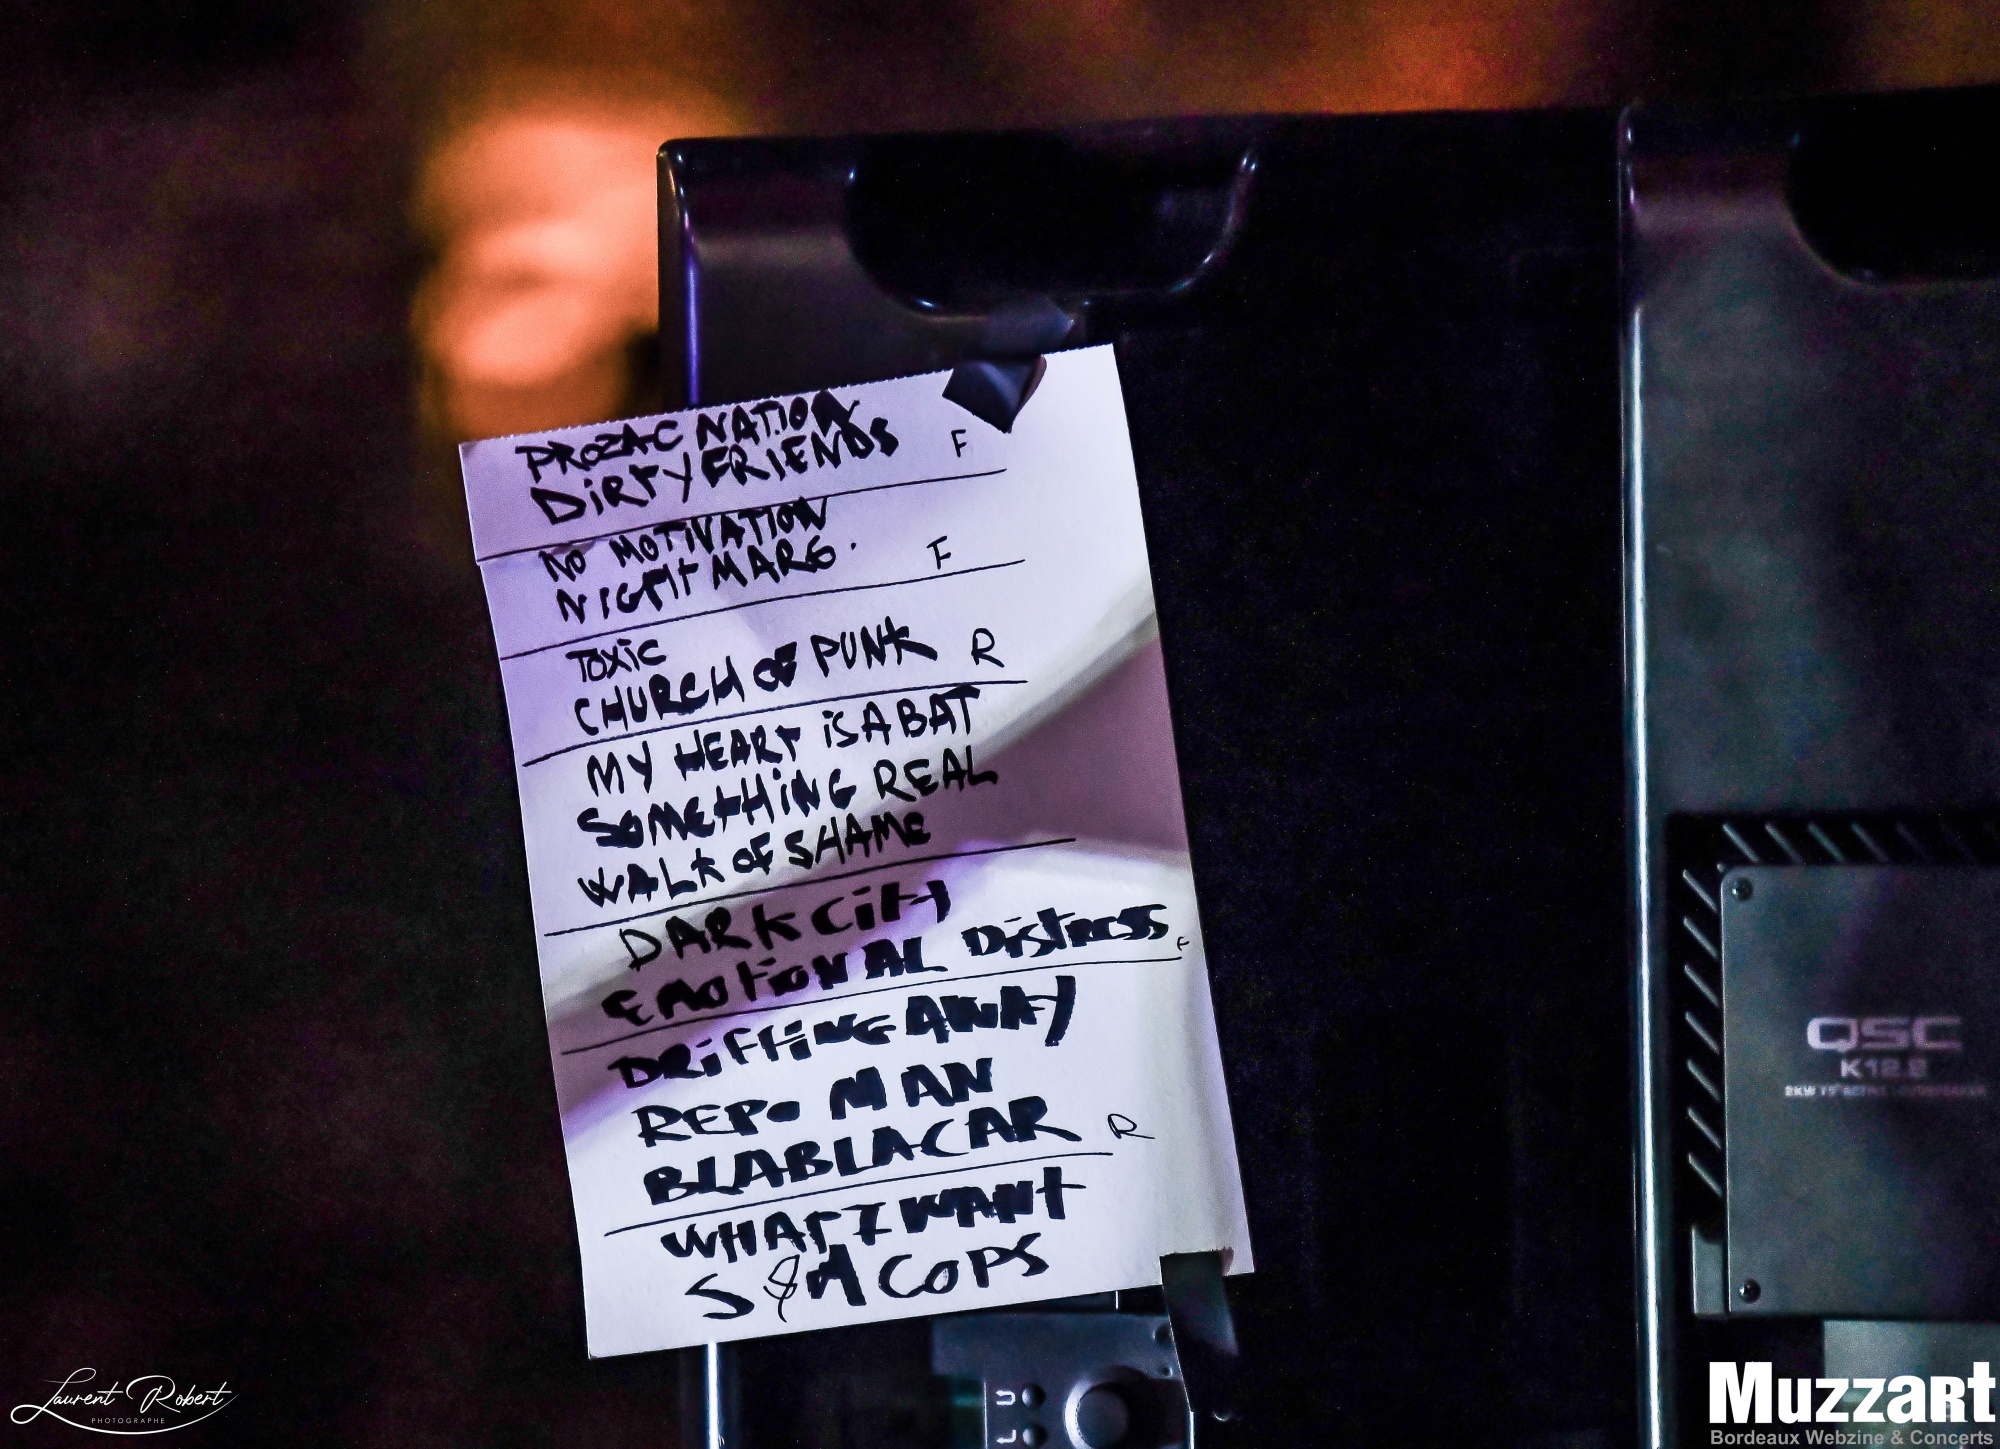 PROZAC NATION
DIRTY FRIENDS F
NO MOTIVATION
NIGHTMARE. F
TOXIC
CHURCH OF PUNK R
MY HEART IS A BAT
SOMETHING REAL
WALK OF SHAME
DARK CITY
EMOTIONAL DISTRESS F
DRIFTING AWAY
REPO MAN
BLABLACAR R
WHAT I WANT
S&M COPS
QSC
K12.2
Laurent Robert
PHOTOGRAPHE
MUZZART
Bordeaux Webzine & Concerts